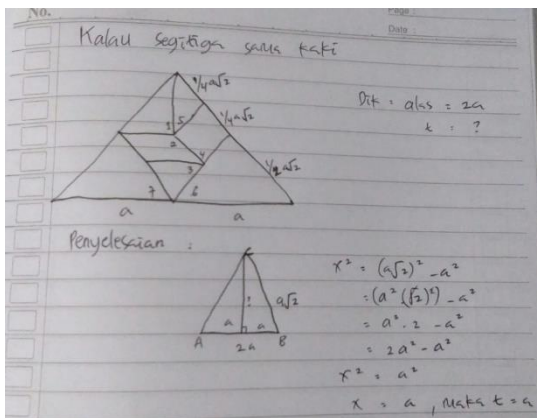 No.
Page :
Date :
Kalau segitiga sama kaki
1/4 a√2
1/4 a√2
1/2 a√2
1
5
2
4
3
7
6
a
a
Dik : alas = 2a
t = ?
Penyelesaian :
C
?
a√2
a
a
A
2a
B
x² = (a√2)² - a²
= (a² (√2)²) - a²
= a² . 2 - a²
= 2a² - a²
x² = a²
x = a , maka t = a